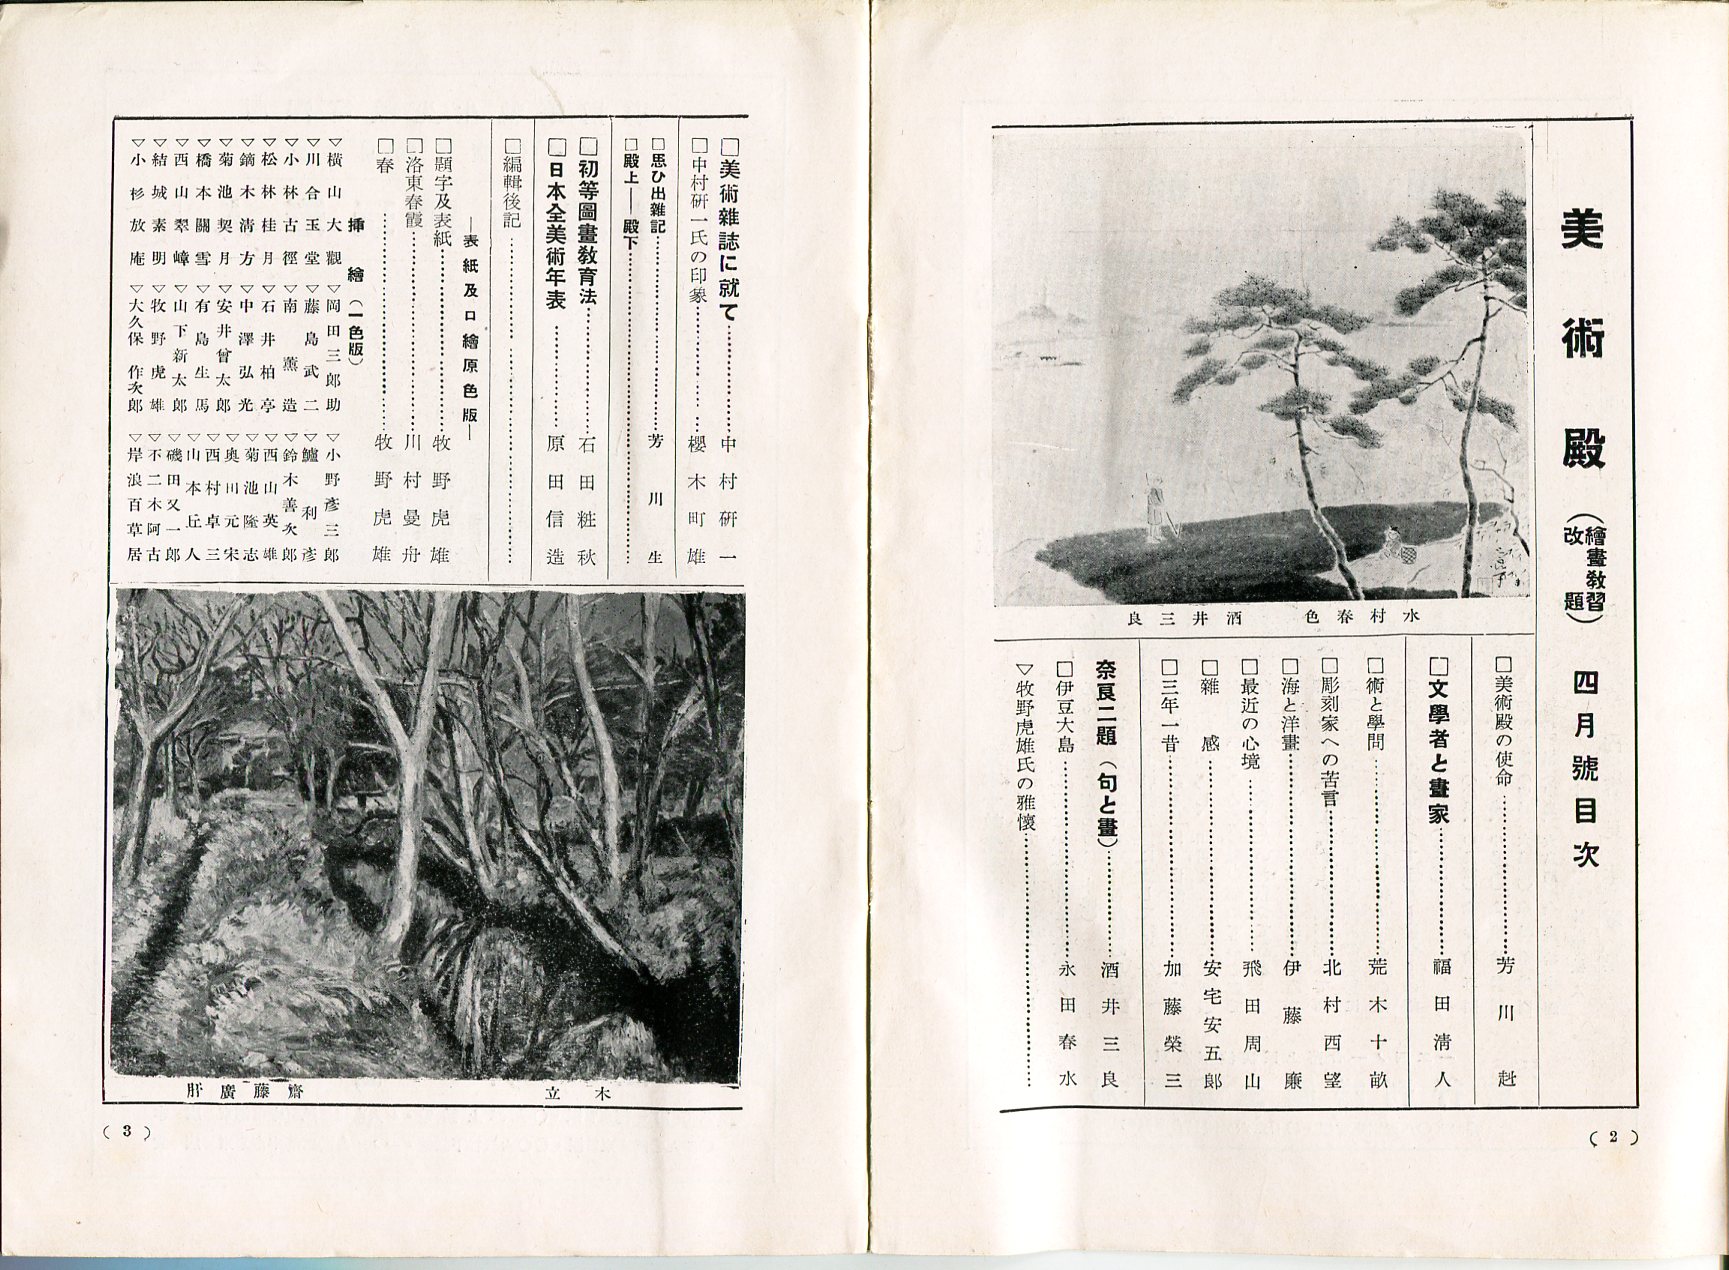 美術殿（繪畫敎習改題）四月號目次
水村春色　酒井三良
□美術殿の使命……芳川赳
□文學者と畫家……福田淸人
□術と學問……荒木十畝
□彫刻家への苦言……北村西望
□海と洋畫……伊藤廉
□最近の心境……飛田周山
□雜感……安宅安五郎
□三年一昔……加藤榮三
奈良二題（句と畫）……酒井三良
□伊豆大島……永田春水
▽牧野虎雄氏の雅懷……
（2）
□美術雜誌に就て……中村硏一
□中村硏一氏の印象……櫻木町雄
□思ひ出雜記……芳川生
□殿上——殿下……
□初等圖畫敎育法……石田粧秋
□日本全美術年表……原田信造
□編輯後記……
—表紙及口繪原色版—
□題字及表紙……牧野虎雄
□洛東春霞……川村曼舟
□春……牧野虎雄
挿繪（一色版）
▽橫山大觀▽岡田三郎助▽小野彥三郎
▽川合玉堂▽藤島武二▽鱸利彥
▽小林古徑▽南薰造▽鈴木善次郎
▽松林桂月▽石井柏亭▽西山英雄
▽鏑木淸方▽中澤弘光▽菊池隆志
▽菊池契月▽安井曾太郎▽奧田元宋
▽橋本關雪▽有島生馬▽西村卓三
▽西山翠嶂▽山下新太郎▽山本丘人
▽結城素明▽牧野虎雄▽磯田又一郎
▽小杉放庵▽大久保作次郎▽不二木阿古
▽岸浪百草居
木立　齋藤廣肝
（3）